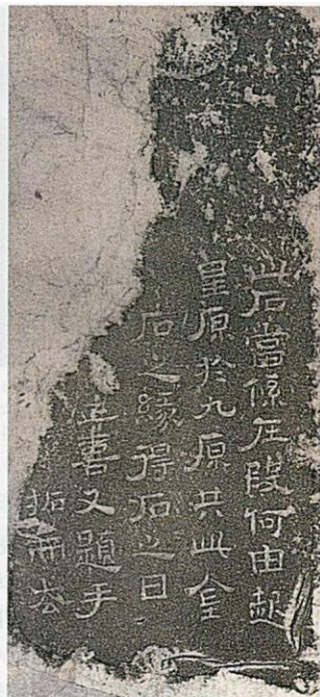 此石當係左段何由起
星原於九原共此金
石之緣得石之日
喜又題手
拓而去